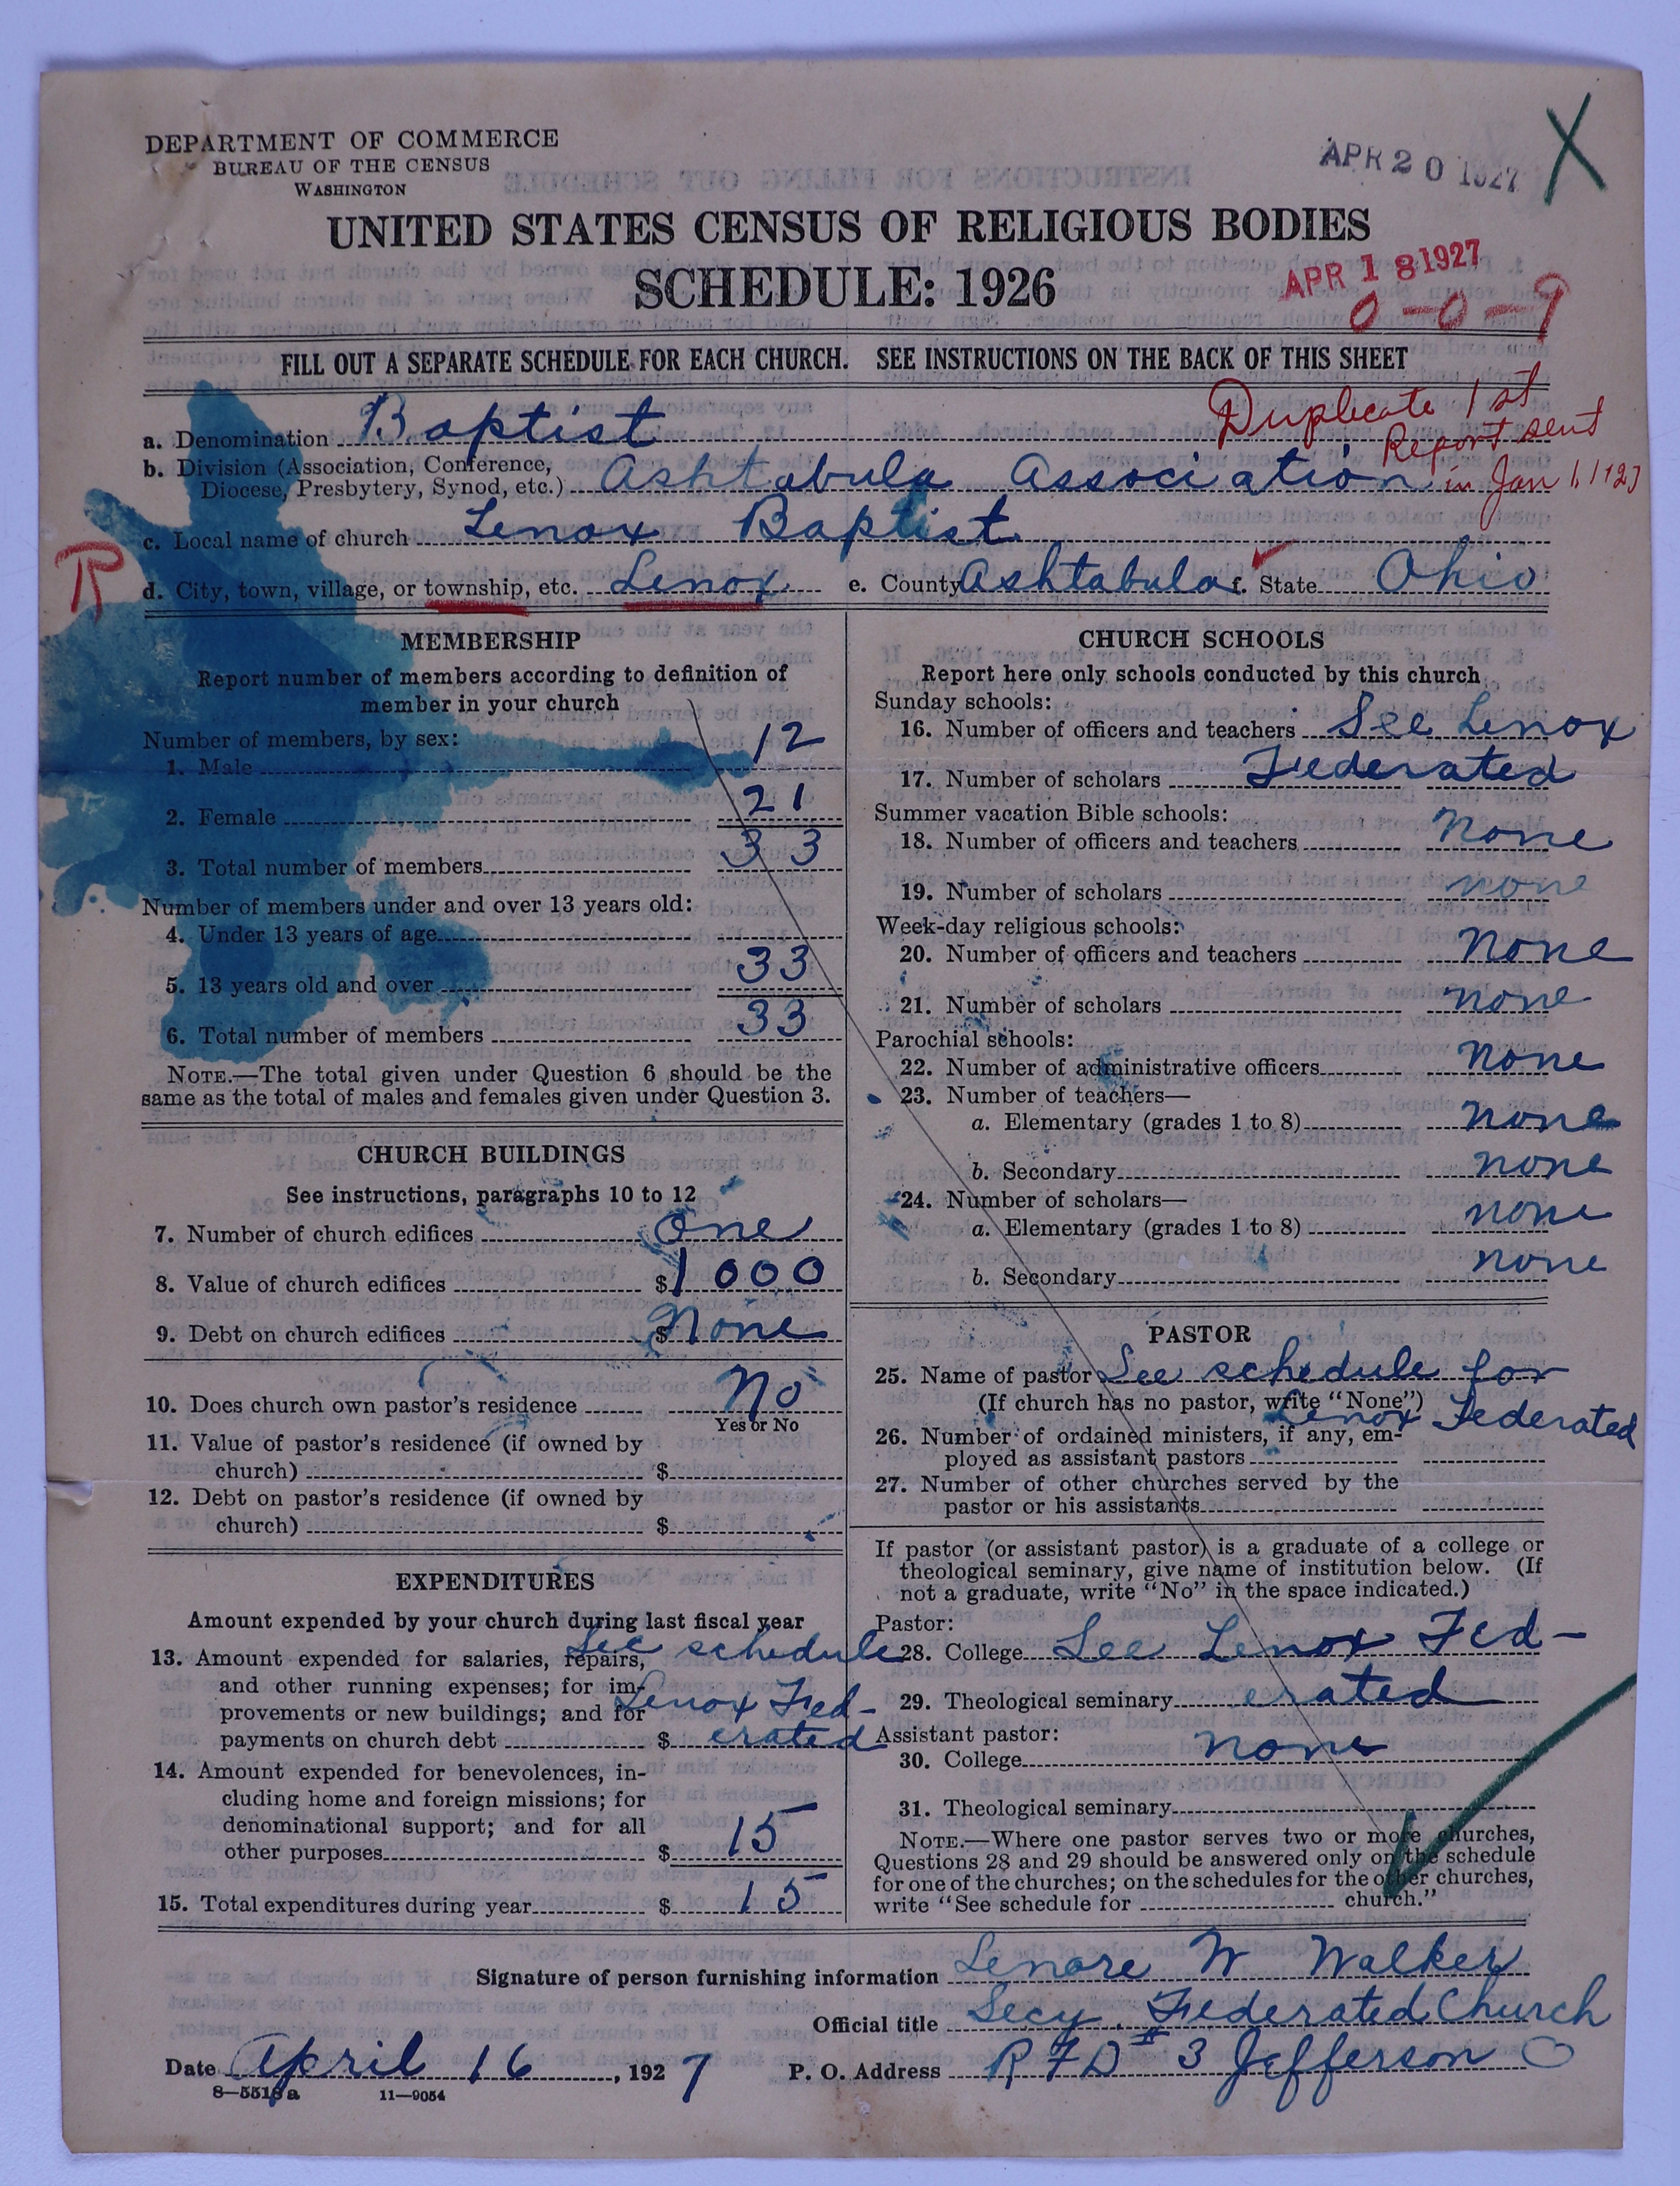 DEPARTMENT OF COMMERCE
BUREAU OF THE CENSUS
WASHINGTON
APR 20 1927
X
UNITED STATES CENSUS OF RELIGIOUS BODIES
SCHEDULE: 1926
APR 18 1927
0-0-9
FILL OUT A SEPARATE SCHEDULE FOR EACH CHURCH. SEE INSTRUCTIONS ON THE BACK OF THIS SHEET
Duplicate 1st
Report sent
in Jan
a. Denomination Baptist
b. Division (Association, Conference,
Diocese, Presbytery, Synod, etc.) Ashtabula Association
c. Local name of church Lenox Baptist
R
d. City, town, village, or township, etc. Lenox e. County Ashtabula f. State Ohio
MEMBERSHIP
Report number of members according to definition of
member in your church
Number of members, by sex:
1. Male 12
2. Female 21
3. Total number of members 33
Number of members under and over 13 years old:
4. Under 13 years of age
5. 13 years old and over 33
6. Total number of members 33
NOTE.—The total given under Question 6 should be the
same as the total of males and females given under Question 3.
CHURCH BUILDINGS
See instructions, paragraphs 10 to 12
7. Number of church edifices One
8. Value of church edifices $1000
9. Debt on church edifices $None
10. Does church own pastor's residence No
Yes or No
11. Value of pastor's residence (if owned by
church) $
12. Debt on pastor's residence (if owned by
church) $
EXPENDITURES
Amount expended by your church during last fiscal year
13. Amount expended for salaries, repairs, See schedule
and other running expenses; for im-
provements or new buildings; and for Lenox Fed-
payments on church debt $ erated
14. Amount expended for benevolences, in-
cluding home and foreign missions; for
denominational support; and for all
other purposes $ 15
15. Total expenditures during year $ 15
CHURCH SCHOOLS
Report here only schools conducted by this church
Sunday schools:
16. Number of officers and teachers See Lenox
17. Number of scholars Federated
Summer vacation Bible schools:
18. Number of officers and teachers None
19. Number of scholars none
Week-day religious schools:
20. Number of officers and teachers None
21. Number of scholars none
Parochial schools:
22. Number of administrative officers None
23. Number of teachers—
a. Elementary (grades 1 to 8) None
b. Secondary none
24. Number of scholars—
a. Elementary (grades 1 to 8) none
b. Secondary none
PASTOR
25. Name of pastor See schedule for
(If church has no pastor, write "None")
Lenox Federated
26. Number of ordained ministers, if any, em-
ployed as assistant pastors
27. Number of other churches served by the
pastor or his assistants
If pastor (or assistant pastor) is a graduate of a college or
theological seminary, give name of institution below. (If
not a graduate, write "No" in the space indicated.)
Pastor:
28. College See Lenox Fed-
29. Theological seminary erated
Assistant pastor:
30. College none
31. Theological seminary
NOTE.—Where one pastor serves two or more churches,
Questions 28 and 29 should be answered only on the schedule
for one of the churches; on the schedules for the other churches,
write "See schedule for church."
Signature of person furnishing information Lenore W Walker
Official title Secy. Federated Church
Date April 16, 1927 P. O. Address R F D # 3 Jefferson O
8—5518a 11—9054